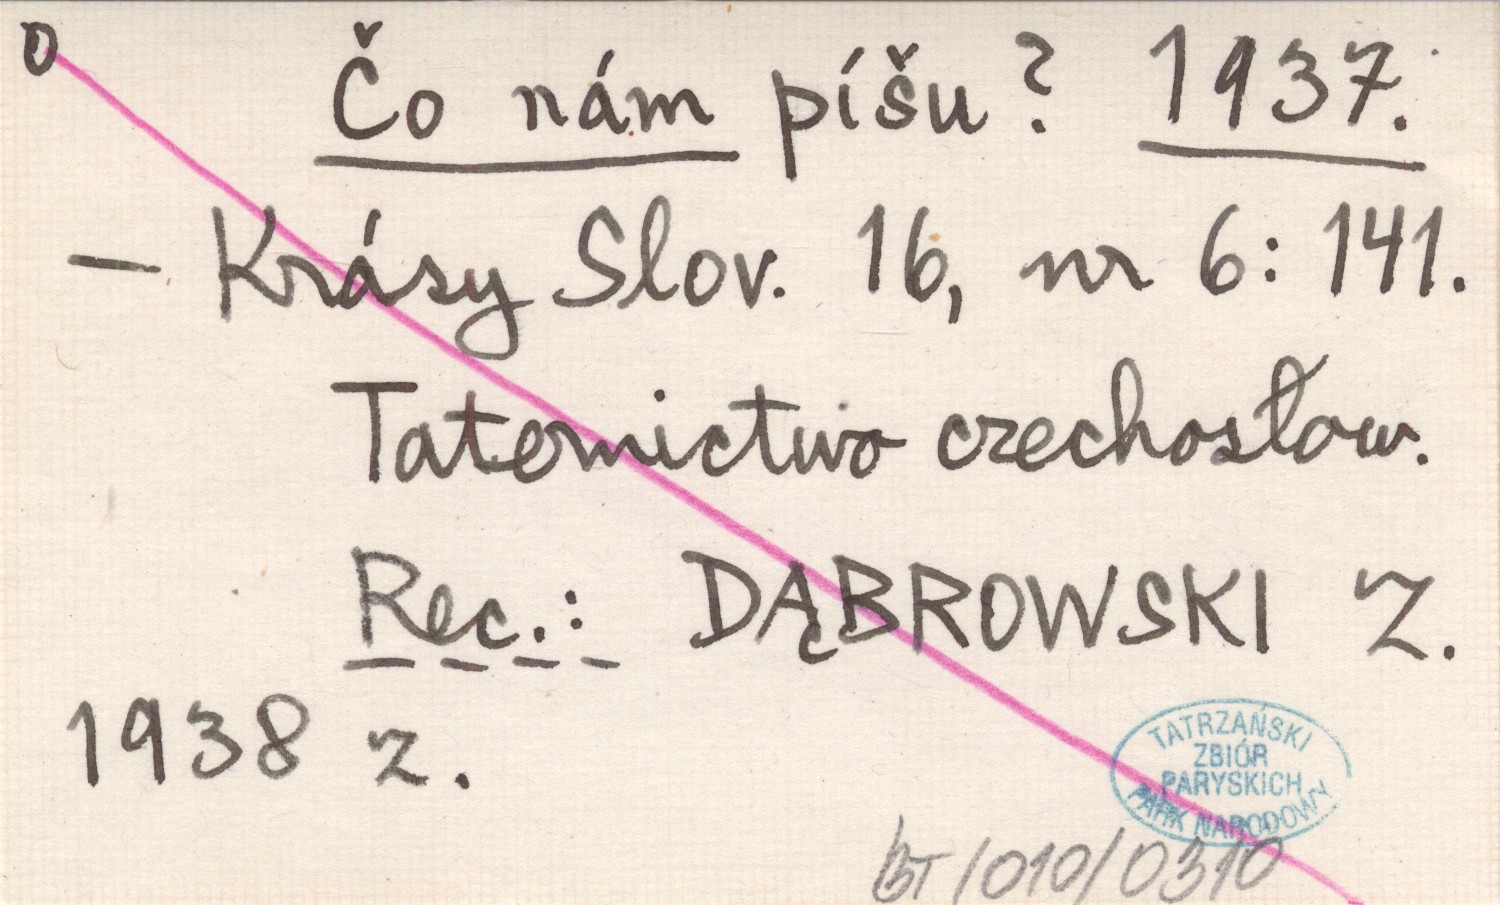 0
Čo nám píšu? 1937.
— Krásy Slov. 16, nr 6: 141.
Taternictwo czechosłow.
Rec.: DĄBROWSKI Z.
1938 z.
TATRZAŃSKI
ZBIÓR
PARYSKICH
PARK NARODOWY
BT/010/0310